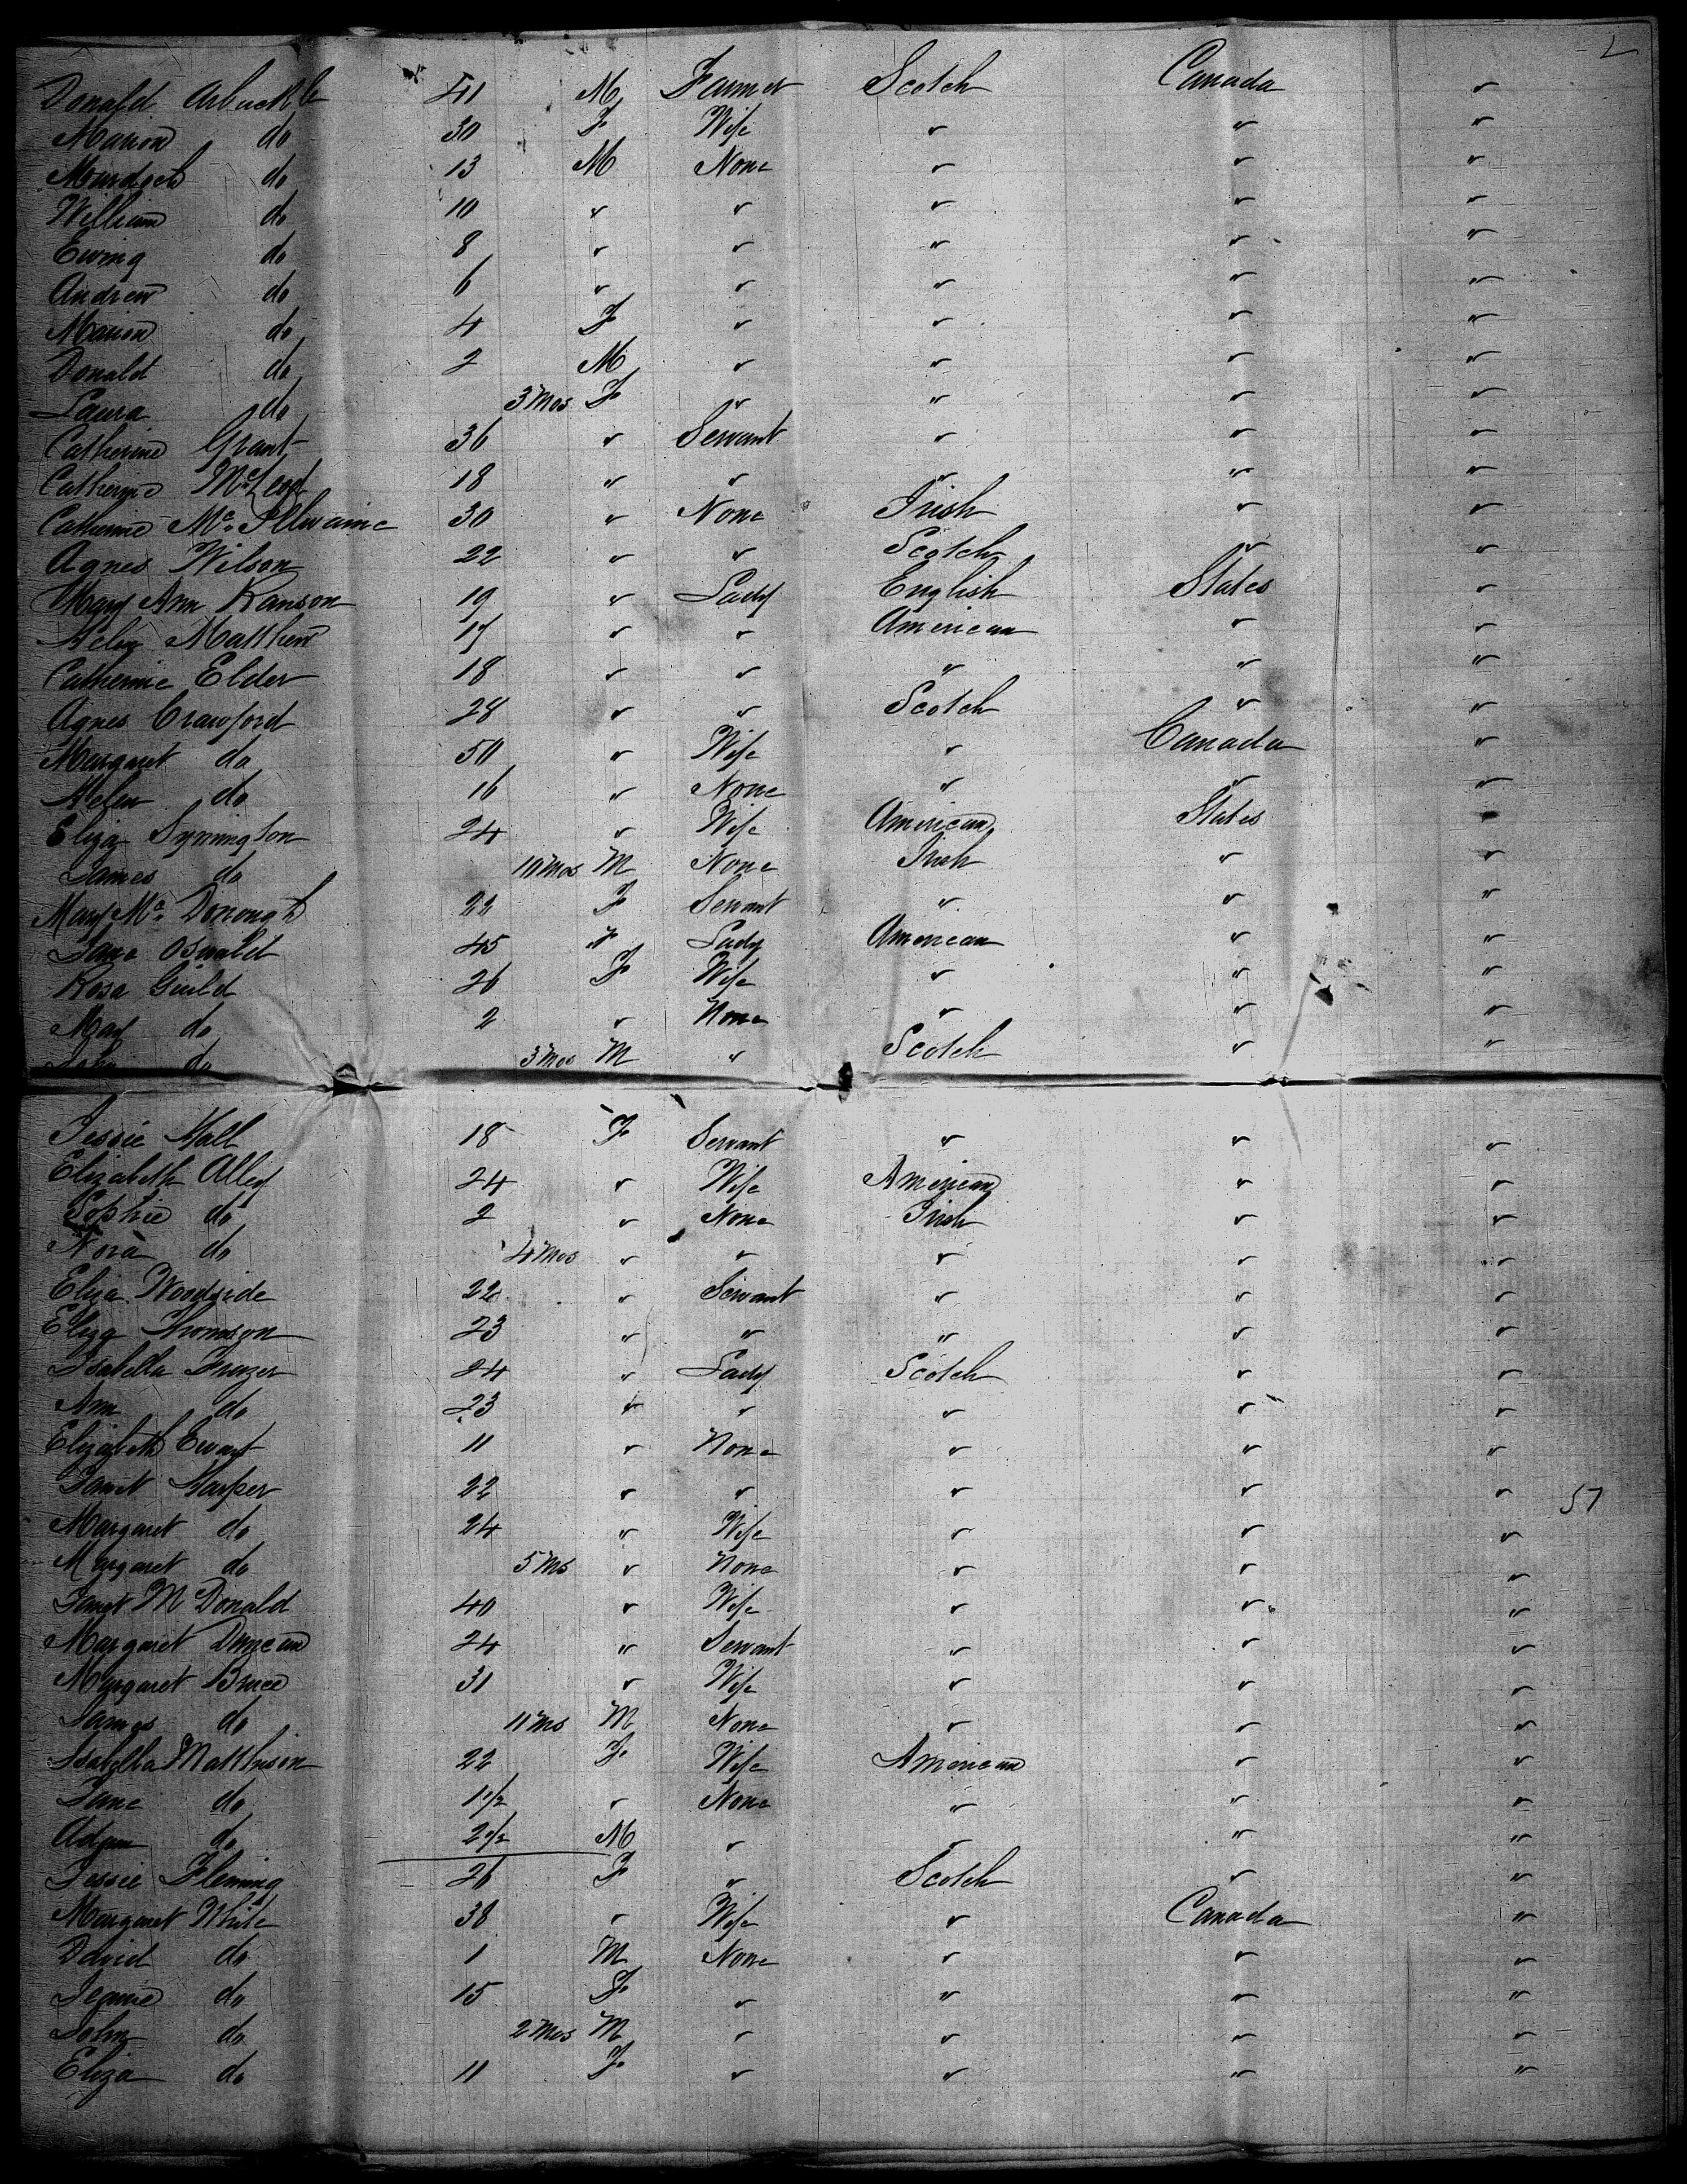 2
Donald Arbuckle 41 M Farmer Scotch Canada "
Marion do 30 F Wife " " "
Murdoch do 13 M None " " "
William do 10 " " " " "
Ewing do 8 " " " " "
Andrew do 6 " " " " "
Marion do 4 F " " " "
Donald do 2 M " " " "
Laura do 3 Mos F " " " "
Catherine Grant 36 " Servant " " "
Catherine McLeod 18 " " " " "
Catherine Mc Illwaine 30 " None Irish " "
Agnes Wilson 22 " " Scotch " "
Mary Ann Ranson 19 " Lady English States "
Helen Matthew 17 " " American " "
Catherine Elder 18 " " " " "
Agnes Crawford 28 " " Scotch " "
Margaret do 50 " Wife " Canada "
Helen do 16 " None " " "
Eliza Symington 24 " Wife American States "
James do 10 Mos M None Irish " "
Mary Mc Donough 22 F Servant " " "
Jane Oswald 45 F Lady American " "
Rosa Guild 26 F Wife " " "
Mary do 2 " None " " "
John do 3 Mos M " Scotch " "
Jessie Hall 18 F Servant " " "
Elizabeth Alley 24 " Wife American " "
Sophie do 2 " None Irish " "
Nora do 4 Mos " " " " "
Eliza Woodside 22 " Servant " " "
Eliza Thomson 23 " " " " "
Isabella Frazer 24 " Lady Scotch " "
Ann do 23 " " " " "
Elizabeth Ewart 11 " None " " "
Janet Harper 22 " " " " " 57
Margaret do 24 " Wife " " "
Margaret do 5 Ms " None " " "
Janet McDonald 40 " Wife " " "
Margaret Duncan 24 " Servant " " "
Margaret Bruce 31 " Wife " " "
James do 11 Ms M None " " "
Isabella Matthison 22 F Wife American " "
Jane do 1 1/2 " None " " "
Adam do 2 1/2 M " " " "
Jessie Fleming 26 F " Scotch " "
Margaret White 38 " Wife " Canada "
David do 1 M None " " "
Jeanie do 15 F " " " "
John do 2 Mos M " " " "
Eliza do 11 F " " " "